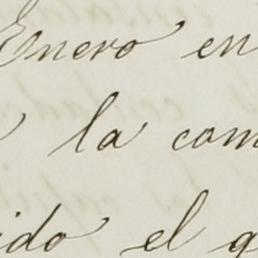 Enero en
la com
ido el g